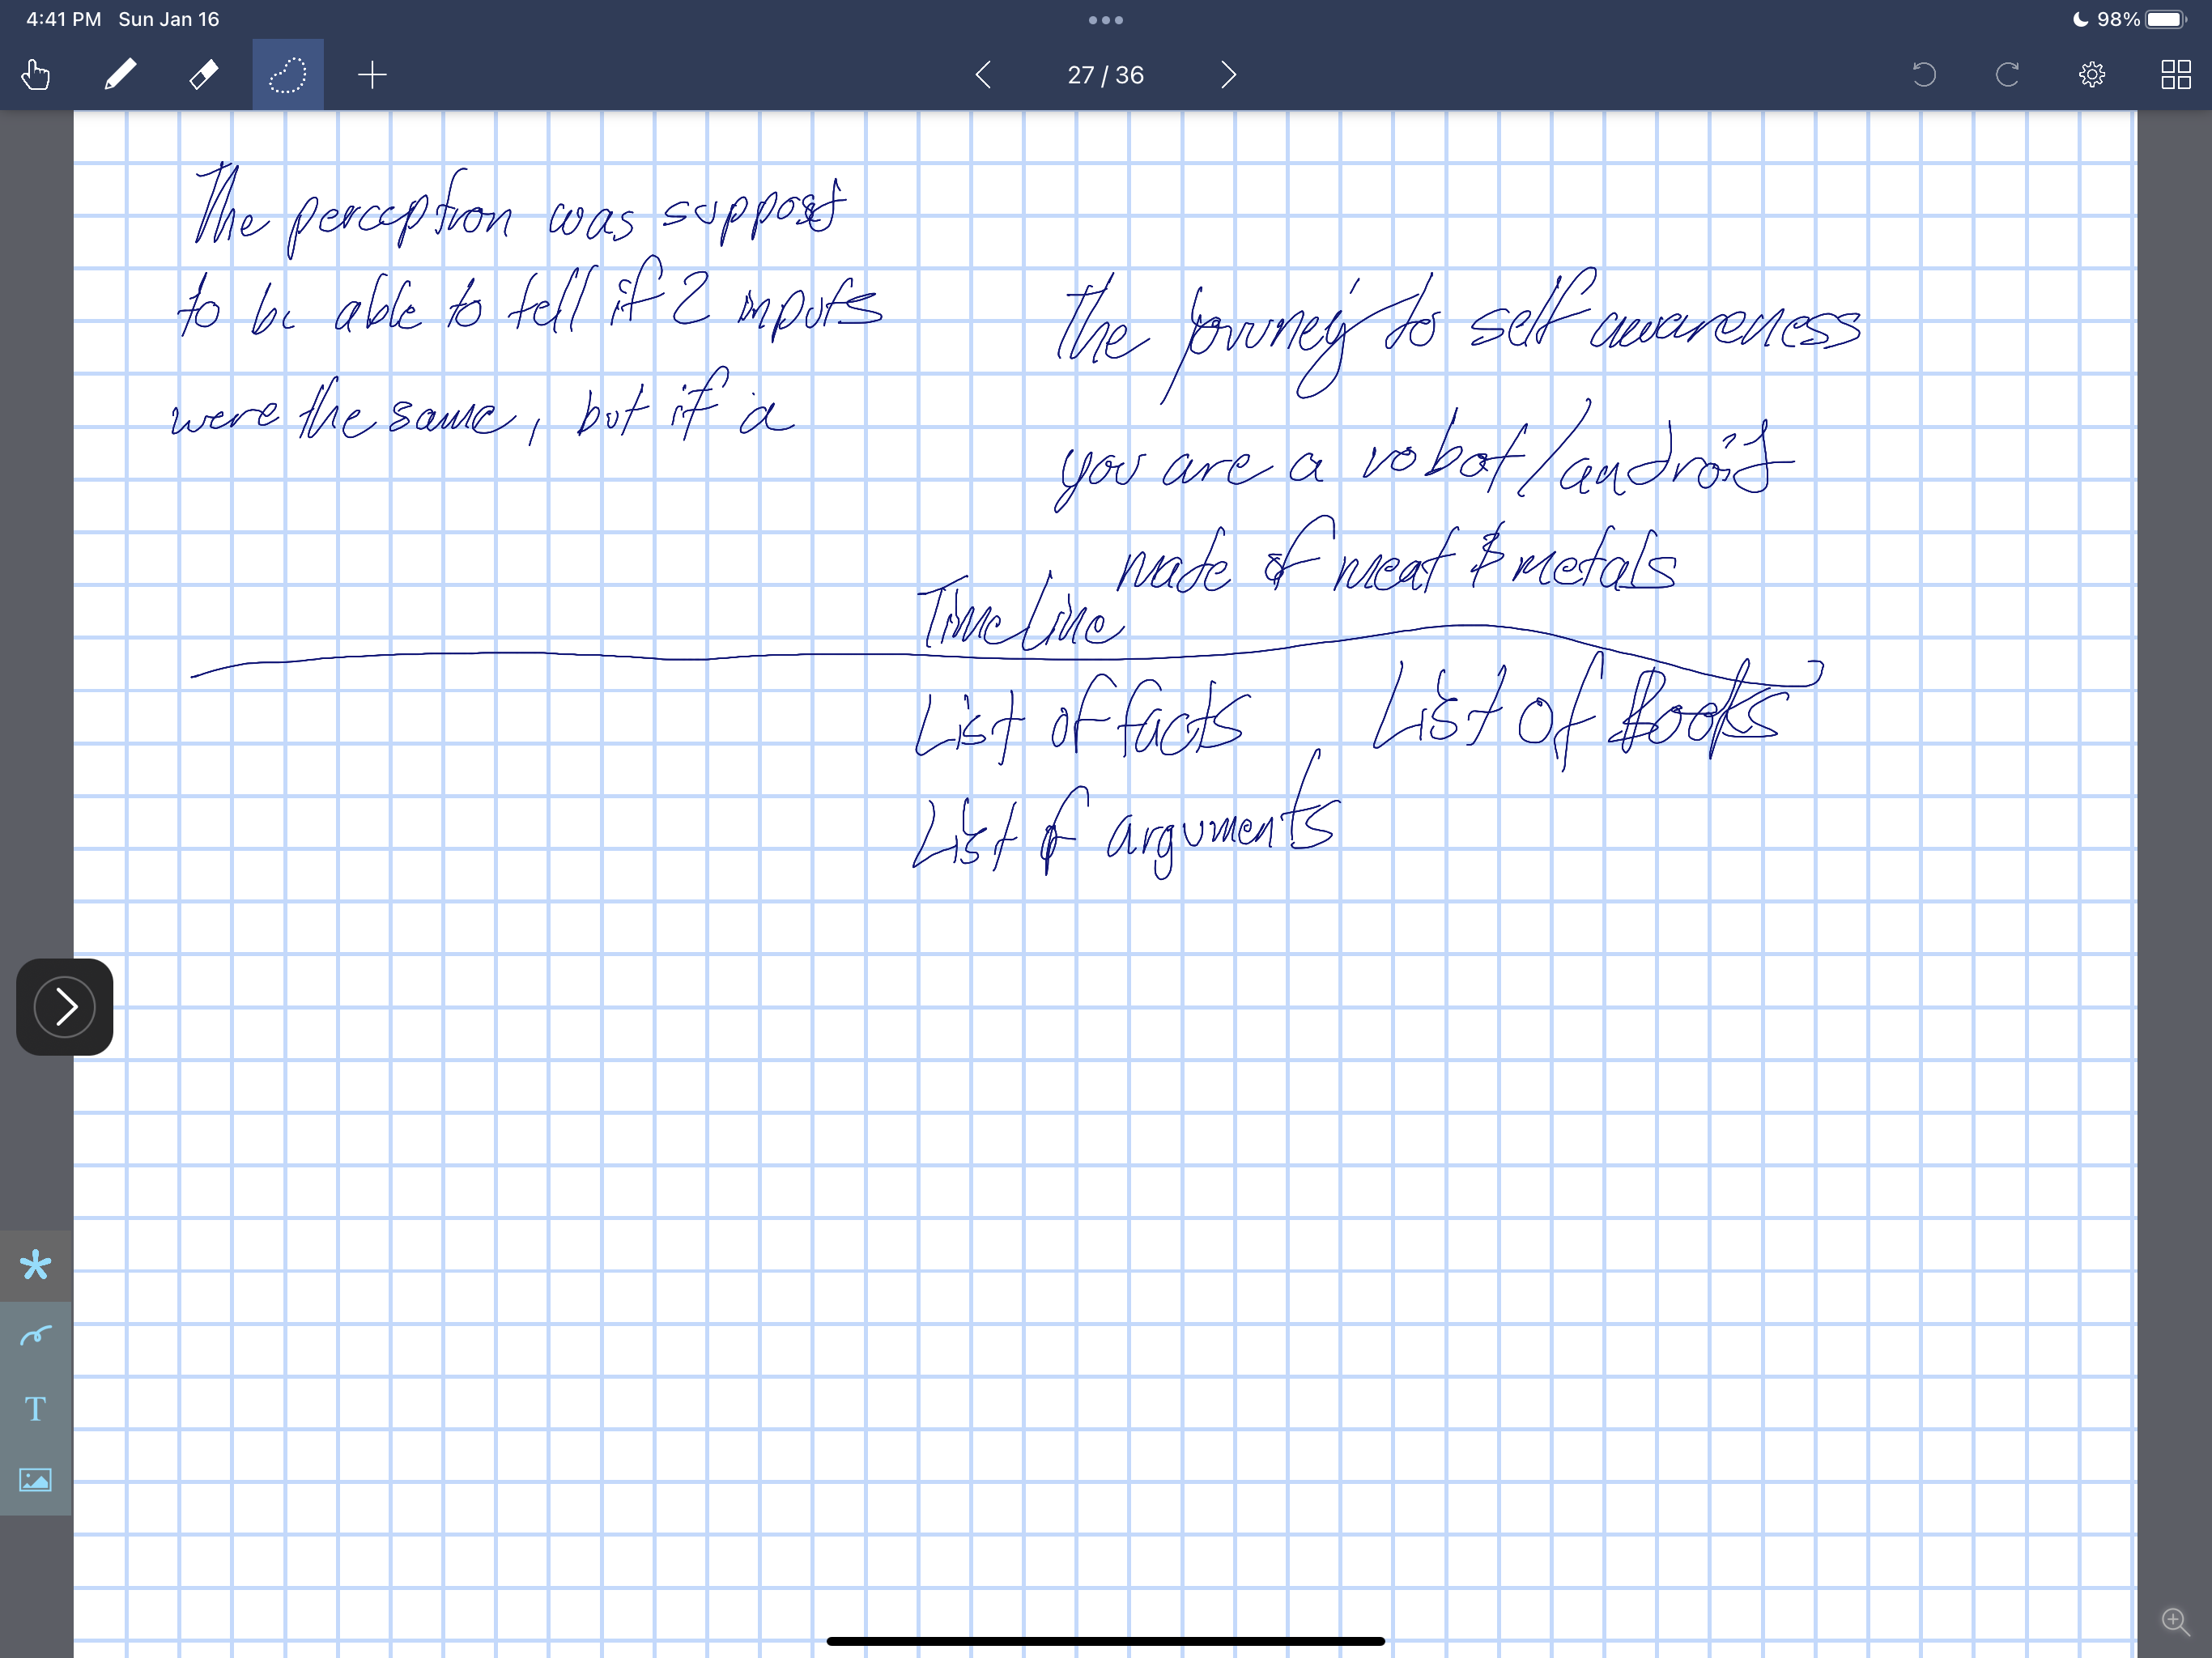 4:41 PM Sun Jan 16
98%
27 / 36
The perceptron was suppost
to be able to tell if 2 inputs
were the same, but if a
The journey to self awareness
you are a robot/android
made of meat & metals
Timeline
List of facts List of Books
List of arguments
T